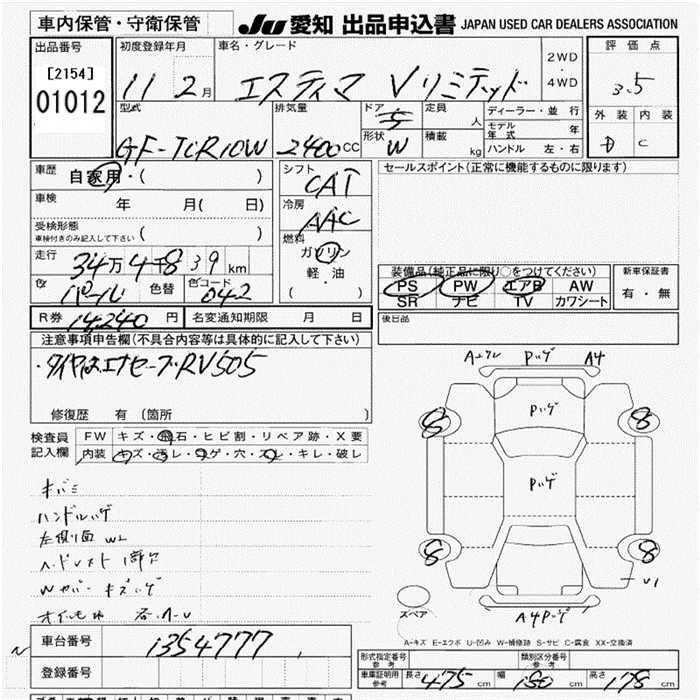 車内保管・守衛保管
JU 愛知 出品申込書 JAPAN USED CAR DEALERS ASSOCIATION
出品番号 初度登録年月 車名・グレード 2WD・4WD 評価点
[2154]
01012
11 2月 エスティマ Vリミテッド 3.5
型式 排気量 ドア 定員 人 ディーラー・並行 外装 内装
形状 積載 kg モデル年式 年
GF-TCR10W 2400cc 5 W ハンドル 左・右 D C
車歴 自家用・( ) シフト CAT セールスポイント(正常に機能するものに限ります)
車検 年 月( 日) 冷房 AAC
受検形態
車検付きのみ記入して下さい ( ) 燃料 ガソリン
走行 34万4千839km 軽・油 装備品(純正品に限り○をつけてください) 新車保証書
色 パール 色替 色コード 042 ( ) PS PW エアB AW 有・無
SR ナビ TV カワシート
R券 14240円 名変通知期限 月 日 後日品
注意事項申告欄(不具合内容等は具体的に記入して下さい)
・タイヤはエナセーブRV505
A-ワレ Pハゲ A4
修復歴 有 (箇所 ) Pハゲ
検査員 FW キズ・飛石・ヒビ割・リペア跡・X要 8 18
記入欄 内装 キズ・汚レ・コゲ・穴・スレ・キレ・破レ
Pハゲ
キバミ
ハンドルハゲ
左側面 W2
8 8
Wカバー キズハゲ
U1
スペア A4Pハゲ
A-キズ E-エクボ U-凹み W-補修跡 S-サビ C-腐食 XX-交換済
車台番号 1354777
型式指定番号 参考 類別区分番号 参考
登録番号 車庫証明用 参考 長さ 475cm 幅 180cm 高さ 178cm